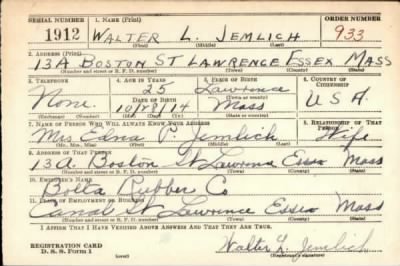 SERIAL NUMBER 1. NAME (Print) ORDER NUMBER
1912 WALTER L. JEMLICH 933
(First) (Middle) (Last)
2. ADDRESS (Print)
13A BOSTON ST LAWRENCE ESSEX MASS
(Number and street or R. F. D. number) (Town) (County) (State)
3. TELEPHONE 4. AGE IN YEARS 5. PLACE OF BIRTH 6. COUNTRY OF CITIZENSHIP
25 Lawrence
None. DATE OF BIRTH (Town or county) U S A.
10/28/14 Mass
(Exchange) (Number) (Mo.) (Day) (Yr.) (State or country)
7. NAME OF PERSON WHO WILL ALWAYS KNOW YOUR ADDRESS 8. RELATIONSHIP OF THAT PERSON
Mrs. Edna P. Jemlich Wife
(Mr., Mrs., Miss) (First) (Middle) (Last)
9. ADDRESS OF THAT PERSON
13A Boston St Lawrence Essex Mass
(Number and street or R. F. D. number) (Town) (County) (State)
10. EMPLOYER'S NAME
Bolta Rubber Co
11. PLACE OF EMPLOYMENT OR BUSINESS
Canal St Lawrence Essex Mass
(Number and street or R. F. D. number) (Town) (County) (State)
I AFFIRM THAT I HAVE VERIFIED ABOVE ANSWERS AND THAT THEY ARE TRUE.
REGISTRATION CARD
D. S. S. Form 1 Walter L. Jemlich
(Registrant's signature)